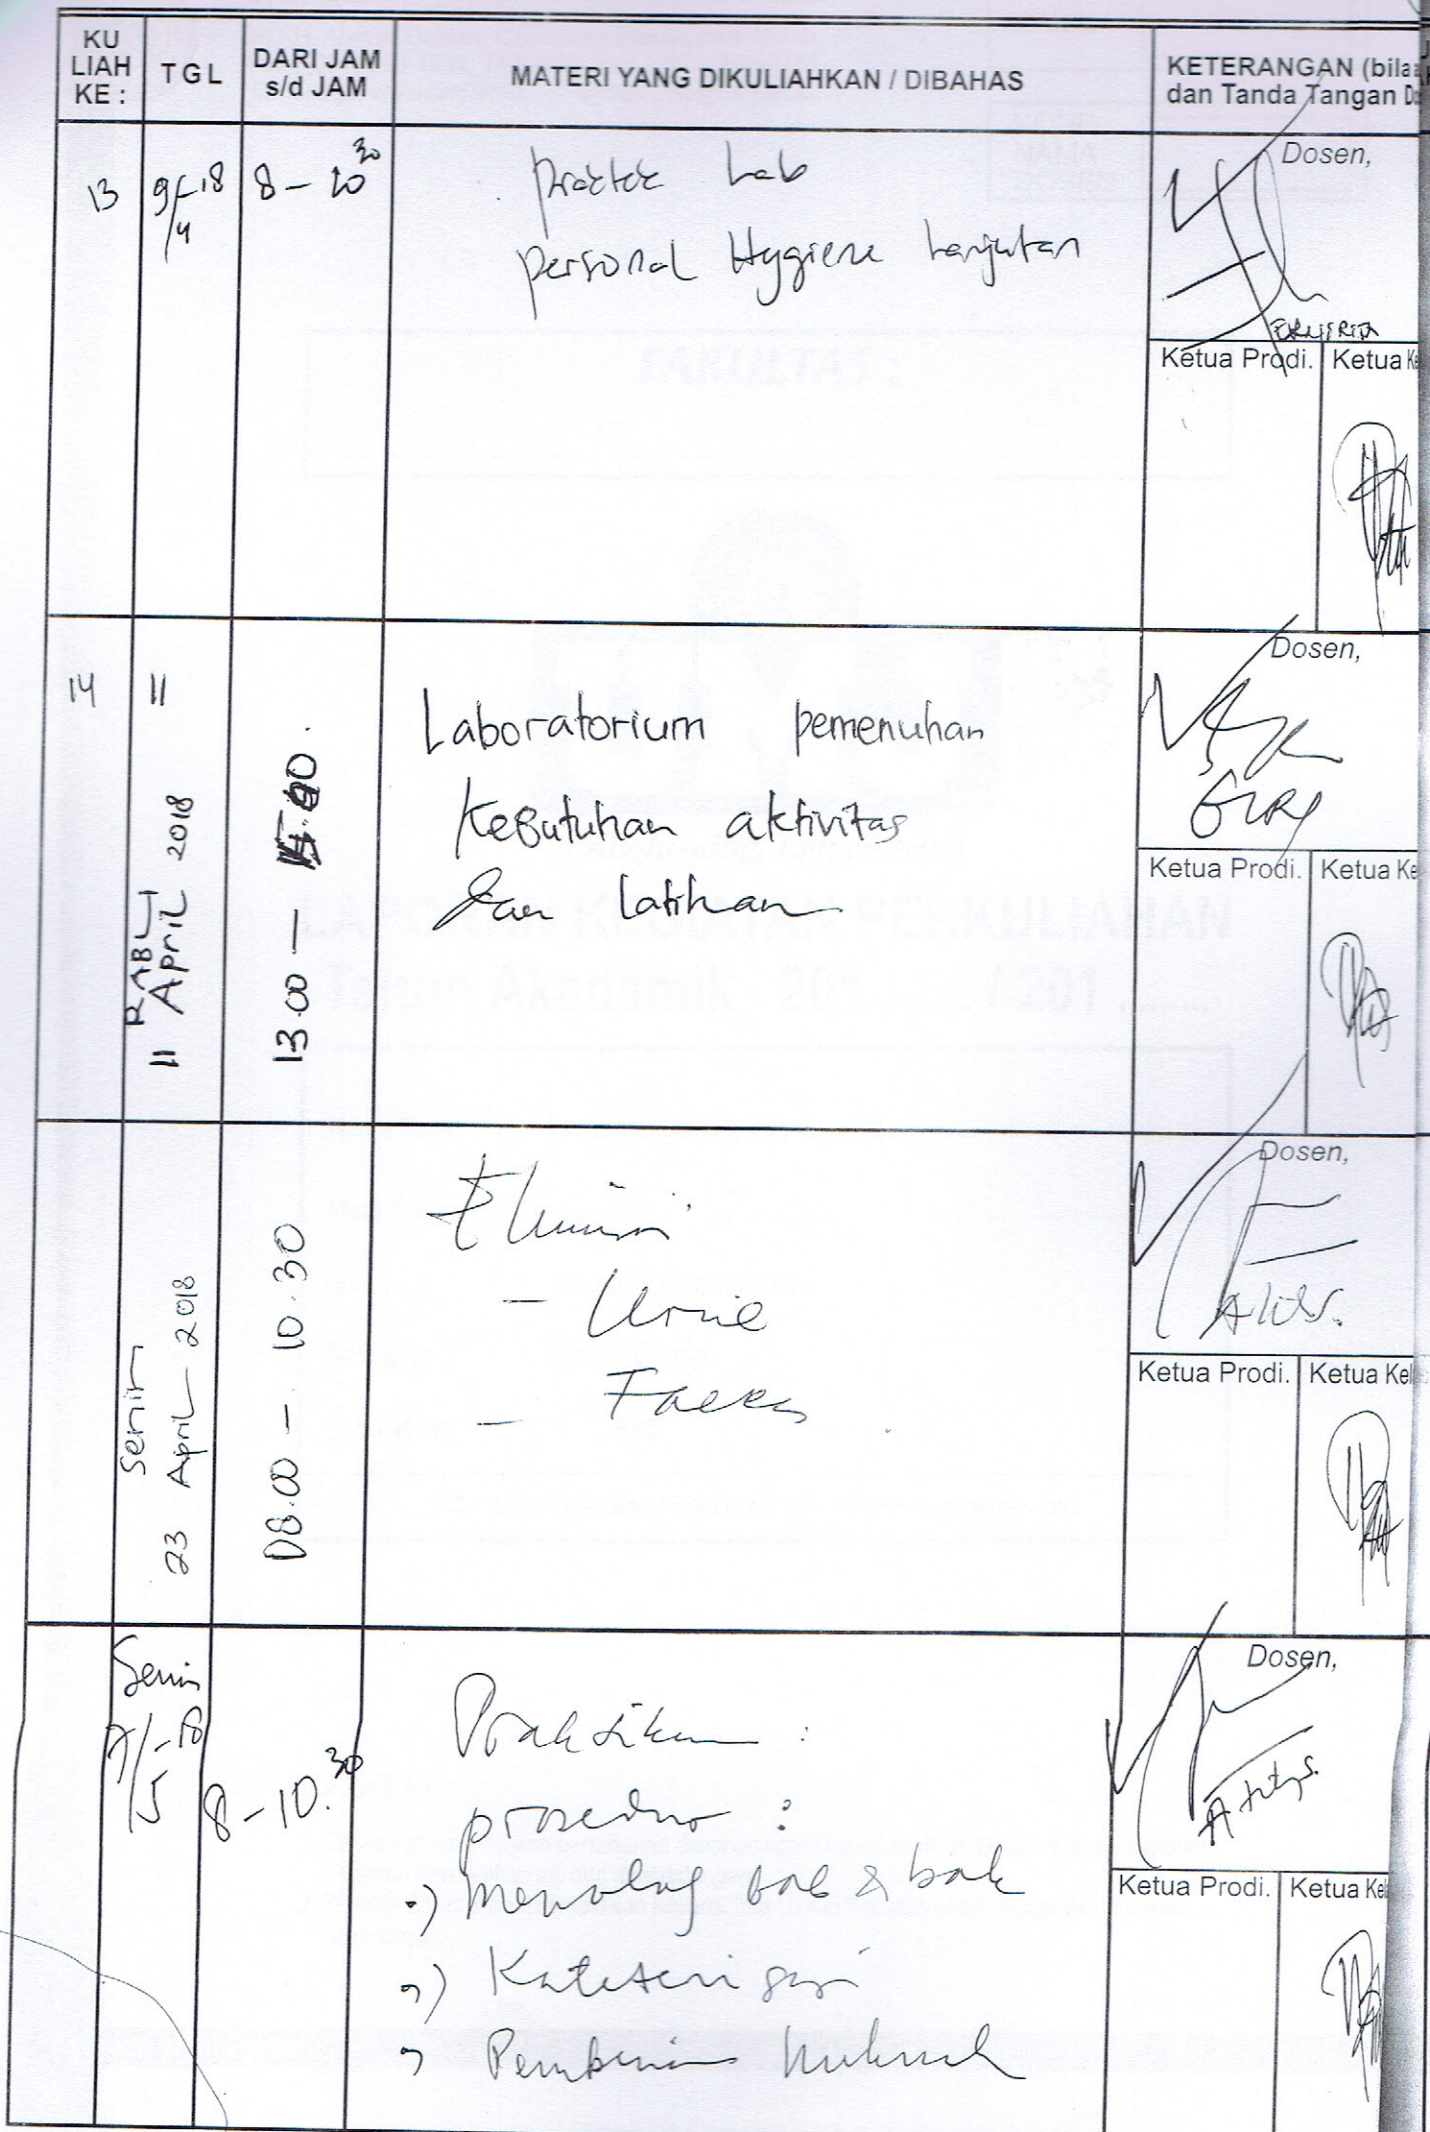 KU LIAH KE :
TGL
DARI JAM s/d JAM
MATERI YANG DIKULIAHKAN / DIBAHAS
KETERANGAN (bila
dan Tanda Tangan
13
9/4-18
8 - 10 30
praktek Lab
personal Hygiene Lanjutan
Dosen,
Ketua Prodi.
Ketua
14
11
RABU
11 April 2018
13.00 -
Laboratorium pemenuhan
Kebutuhan aktivitas
dan latihan
Dosen,
Ketua Prodi.
Ketua Ke
Senin
23 April - 2018
08.00 - 10.30
Eliminasi
- Urine
- Faeces
Dosen,
Ketua Prodi.
Ketua Kel
Senin
7/5-18
8 - 10.30
Praktikum :
prosedur :
.) menolong bab & bak
Dosen,
Ketua Prodi.
Ketua Kel
FAKULTAS :
LAPORAN KEGIATAN PERKULIAHAN
Tahun Akademik 201 ...... / 201 ......